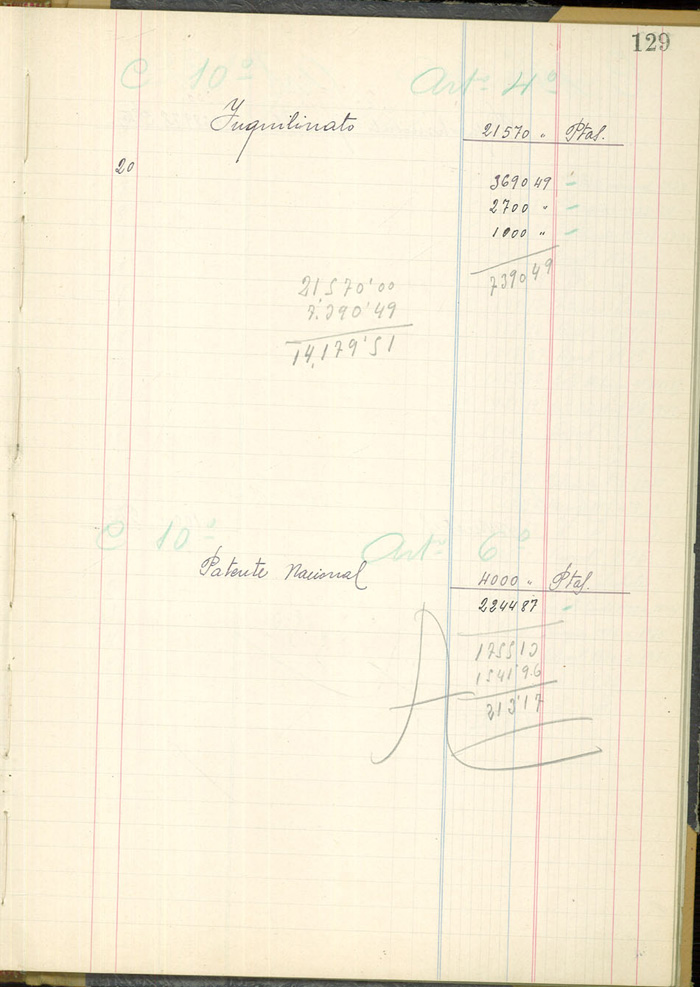 129
C 10º Artº 4º
Inquilinato 21570 " Ptas.
20
3690 49 -
2700 " -
1000 " -
7390 49
21570'00
7.390'49
14,179'51
C 10º Artº 6º
Patente Nacional 4000 " Ptas.
2244 87 -
1755 13
1541 96
213'17